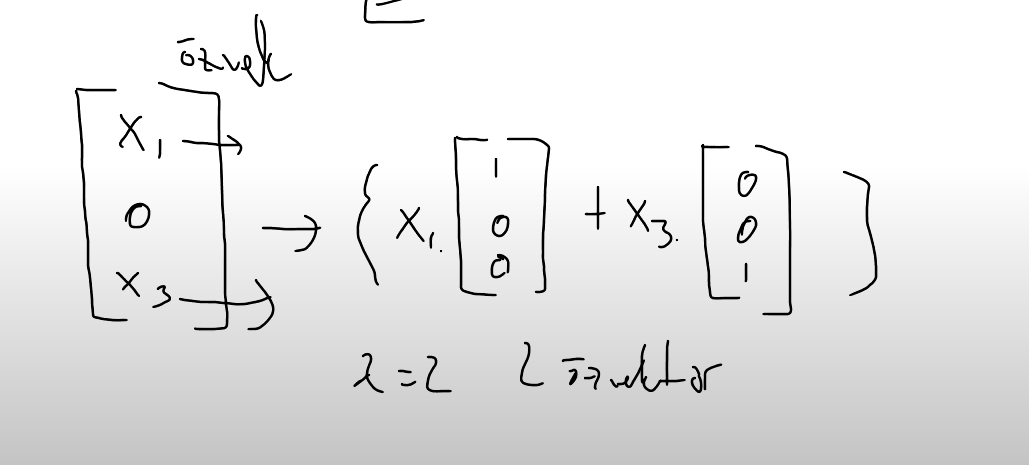 özvek
[x₁ 0 x₃] → { x₁. [1 0 0] + x₃. [0 0 1] }
λ=2 2 özvektor